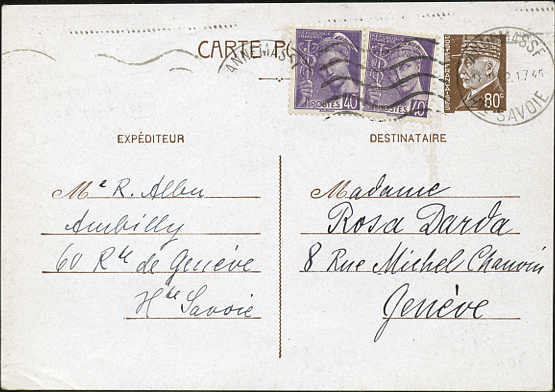 CARTE
ANNEMASSE
RÉPUBLIQUE FRANÇAISE
POSTES 40
RÉPUBLIQUE FRANÇAISE
POSTES 40
80c
ANNEMASSE
17 45
HTE SAVOIE
EXPÉDITEUR
DESTINATAIRE
Me R. Albu
Ambilly
60 Rte de Genève
Hte Savoie
Madame
Rosa Darda
8 Rue Michel Chauvin
Genève